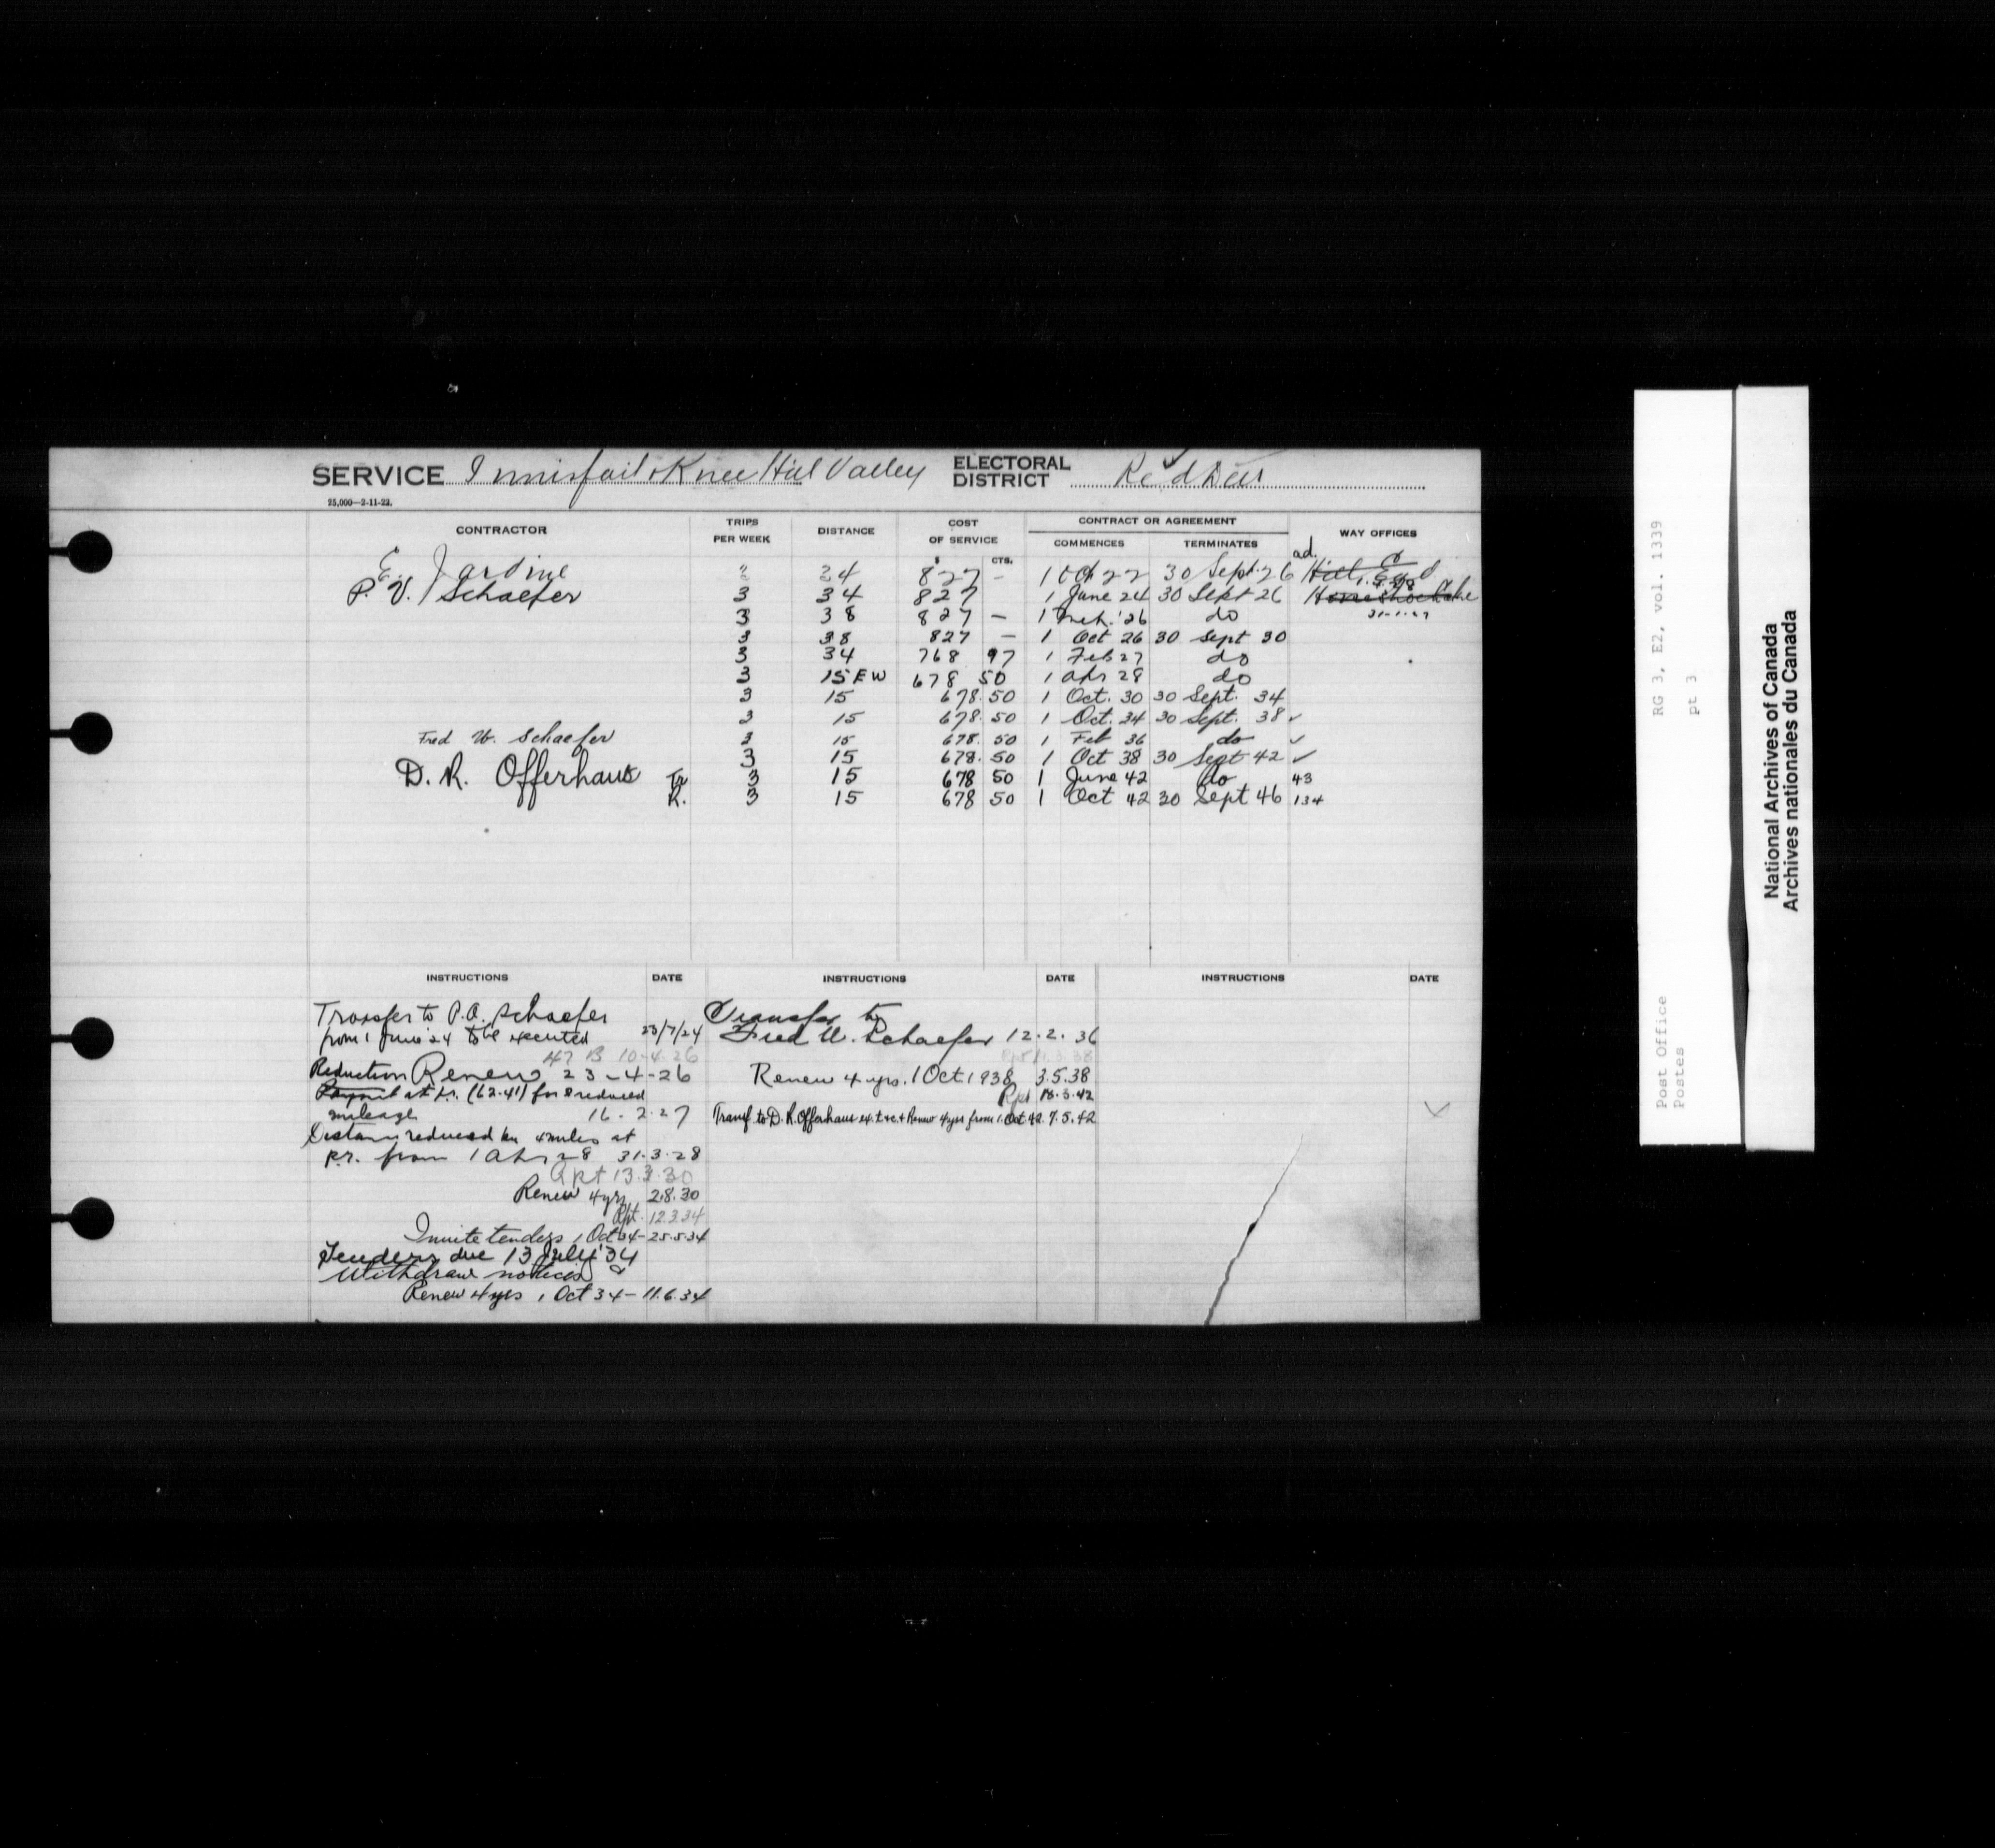 SERVICE Innisfail & Knee Hill Valley ELECTORAL DISTRICT Red Deer
25,000—2-11-22.
CONTRACTOR TRIPS PER WEEK DISTANCE COST OF SERVICE CONTRACT OR AGREEMENT COMMENCES TERMINATES WAY OFFICES
$ CTS. ad.
E. Jardine 24 827 – 1 Oct 22 30 Sept. 26 Hill End
P. V. Schaefer 3 34 827 1 June 24 30 Sept 26 Horseshoe Lake
3 38 827 – 1 Mch. '26 do
3 38 827 – 1 Oct 26 30 Sept 30
3 34 768 97 1 Feb 27 do
3 15 EW 678 50 1 Apr 28 do
3 15 678.50 1 Oct. 30 30 Sept. 34
3 15 678.50 1 Oct. 34 30 Sept. 38 ✓
Fred W. Schaefer 3 15 678.50 1 Feb 36 do ✓
3 15 678.50 1 Oct 38 30 Sept 42 ✓
D. R. Offerhaus Tr 3 15 678 50 1 June 42 do 43
R. 3 15 678 50 1 Oct 42 30 Sept 46 134
INSTRUCTIONS DATE INSTRUCTIONS DATE INSTRUCTIONS DATE
Transfer to P.A. Schaefer
from 1 June 24 to be executed 23/7/24
10-4-26
Reduction Renew 23-4-26
at (62.41) for reduced
mileage 16-2-27
Distance reduced by 4 miles at
p.r. from 1 Apr 28 31.3.28
Rpt 13.3.30
Renew 4 yrs 2.8.30
Rpt. 12.3.34
Invite tenders 1 Oct 34 – 25.5.34
Tenders due 13 July '34
Withdraw notices &
Renew 4 yrs 1 Oct 34 – 11.6.34
Transfer to
Fred W. Schaefer 12.2.36
Renew 4 yrs. 1 Oct. 1938 3.5.38
Rpt 18.3.42
Transf. to D. R. Offerhaus & Renew 4 yrs from 1. Oct 42. 7.5.42
Post Office RG 3, E2, vol. 1339
Postes pt 3
National Archives of Canada
Archives nationales du Canada